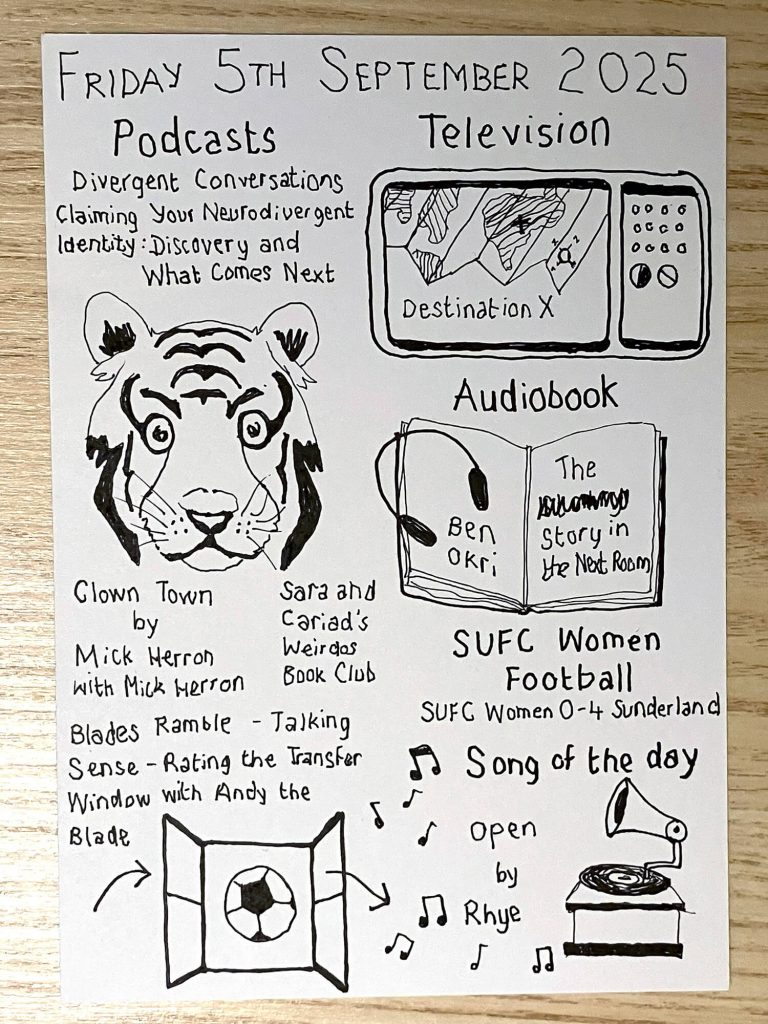 FRIDAY 5TH SEPTEMBER 2025
Podcasts
Divergent Conversations
Claiming Your Neurodivergent
Identity: Discovery and
What Comes Next
Clown Town
by
Mick Herron
with Mick Herron
Sara and
Cariad's
Weirdos
Book Club
Blades Ramble - Talking
Sense - Rating the Transfer
Window with Andy the
Blade
Television
Destination X
Audiobook
Ben
Okri
The
Story in
the Next Room
SUFC Women
Football
SUFC Women 0-4 Sunderland
Song of the day
Open
by
Rhye